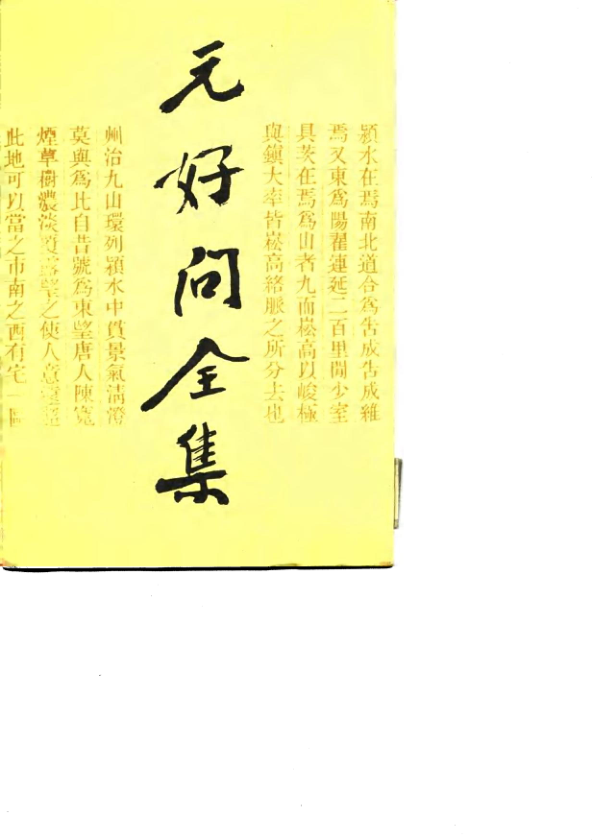 元好问全集
潁水在焉南北道合為告成告成維
焉又東為陽翟連延二百里間少室
具茨在焉為山者九而崧高以峻極
與鎮大率皆崧高絡脈之所分去也
州治九山環列潁水中貫景氣清
莫與為比自昔號為東望唐人陳寬
煙草樹濃淡覽望之使人意
此地可以當之市南之西有宅一區